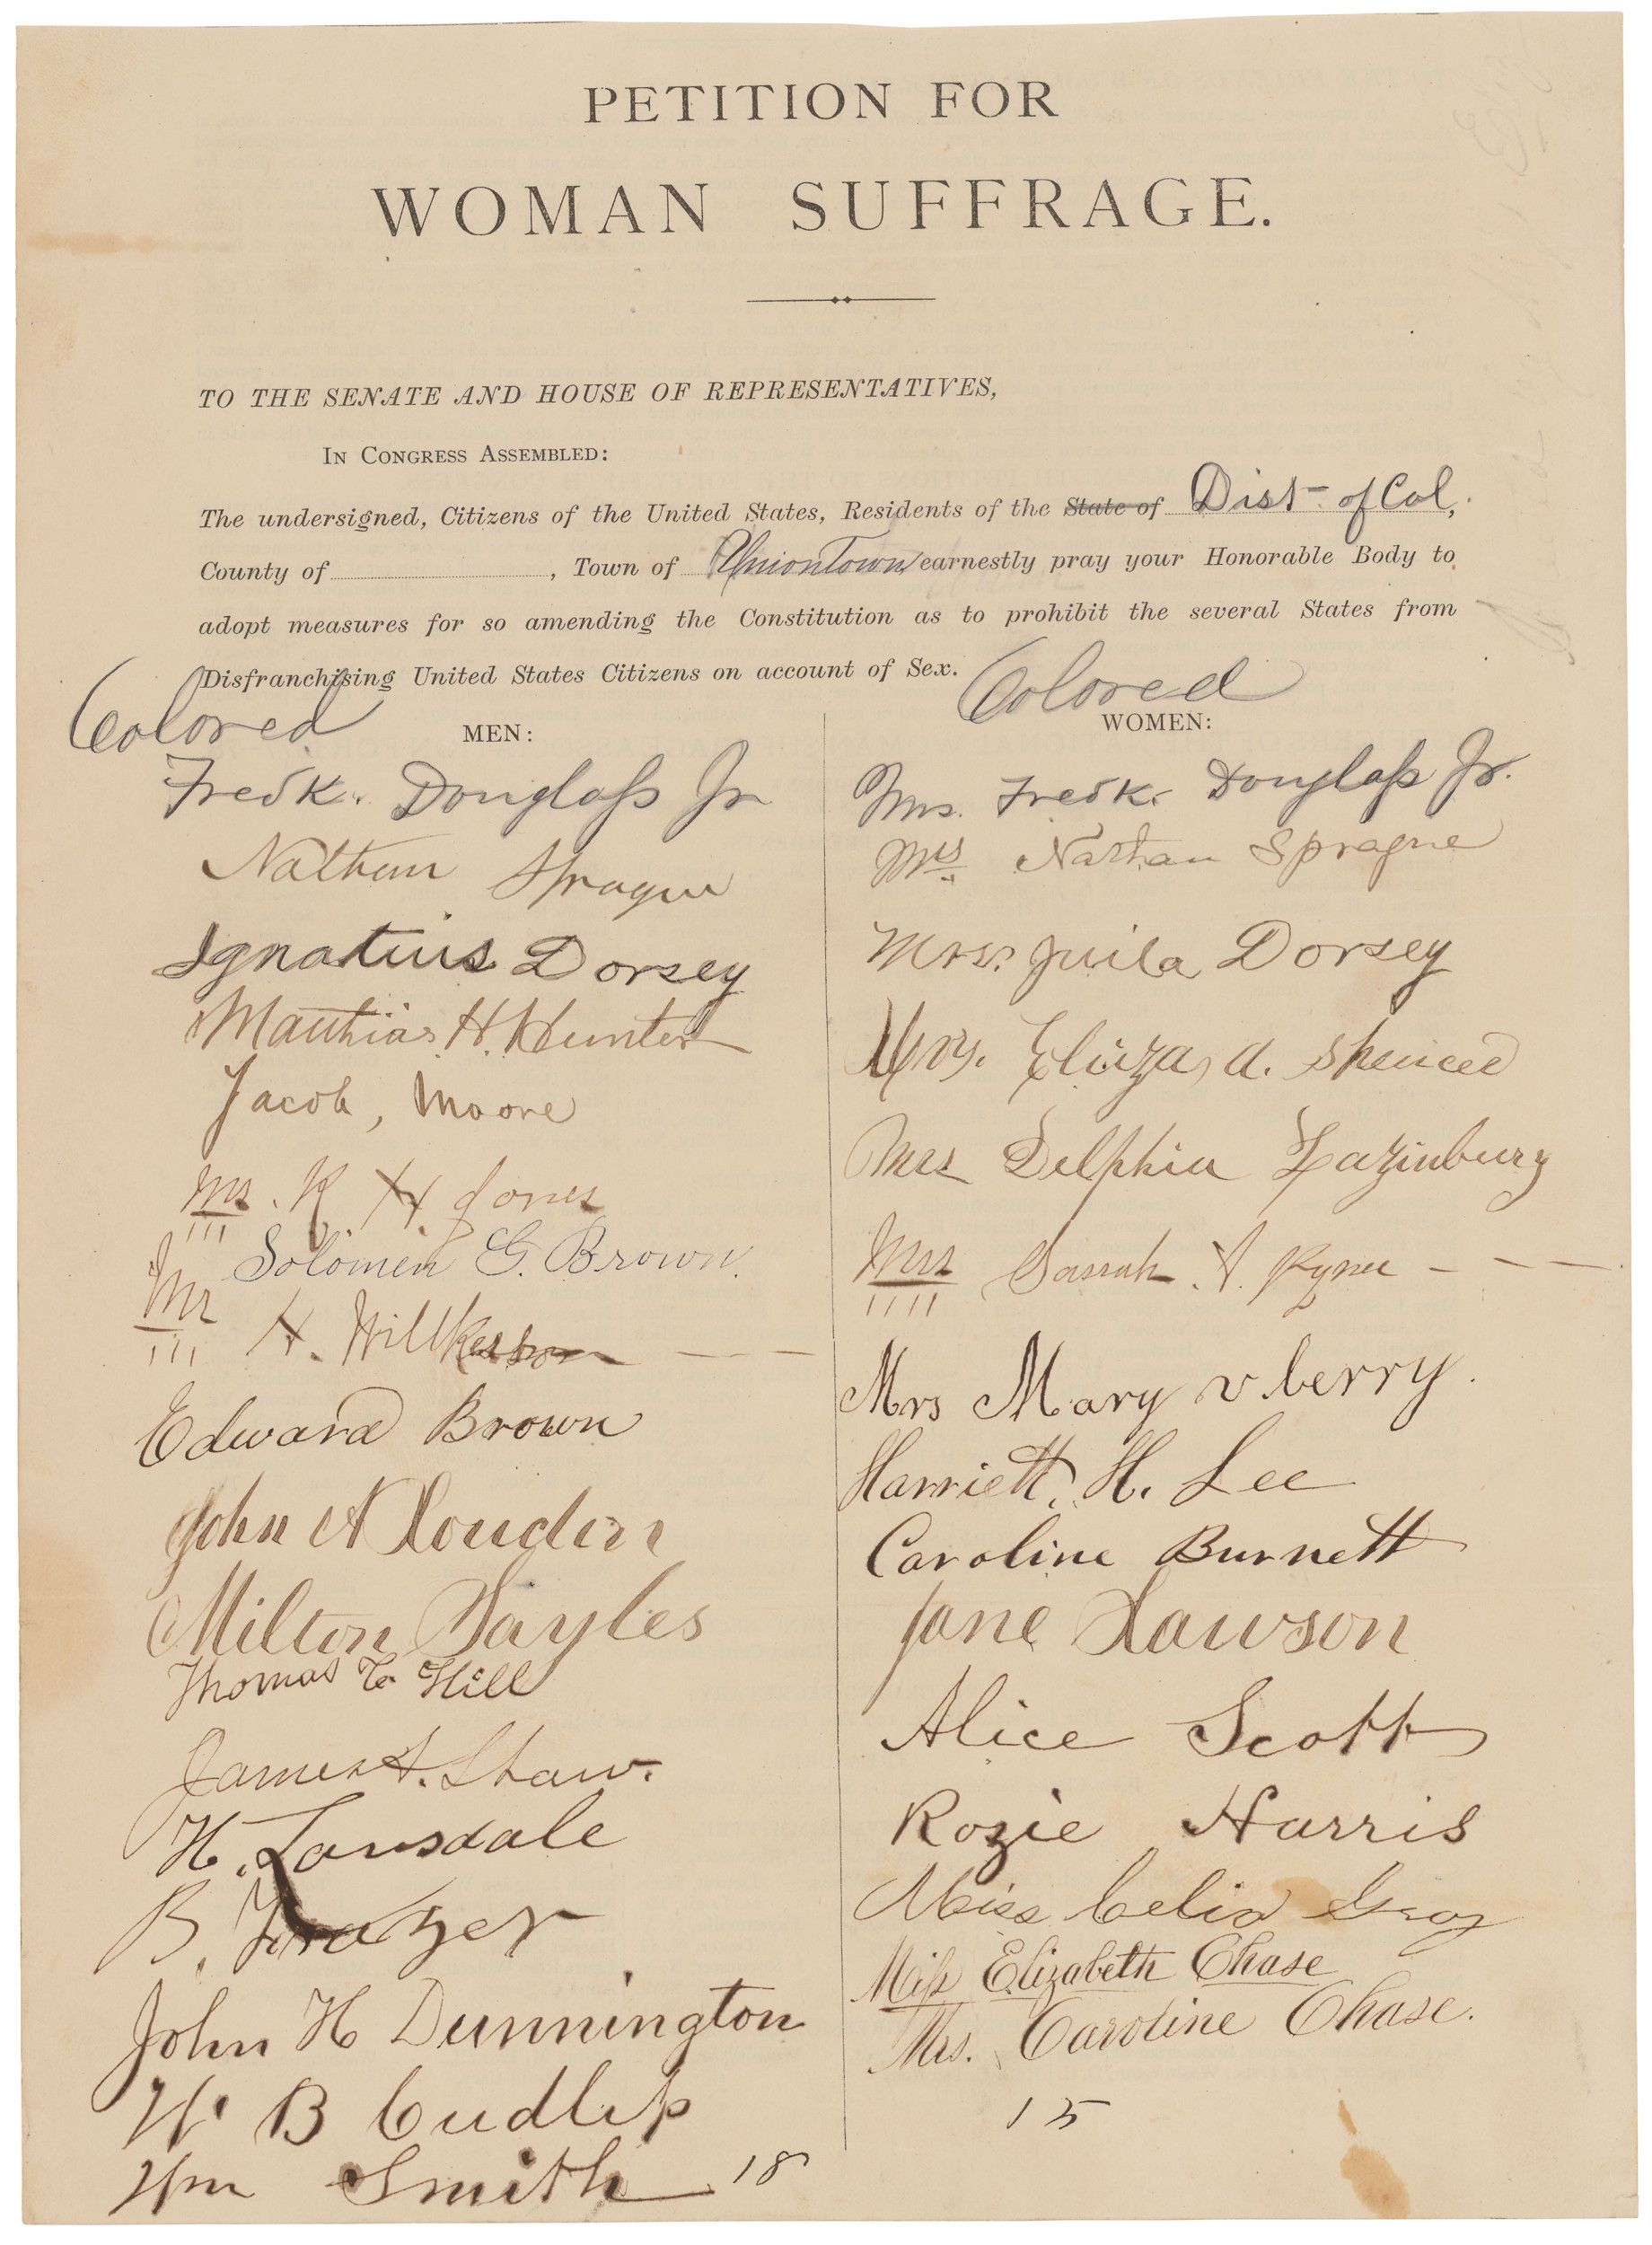 PETITION FOR
WOMAN SUFFRAGE.
TO THE SENATE AND HOUSE OF REPRESENTATIVES,
IN CONGRESS ASSEMBLED:
The undersigned, Citizens of the United States, Residents of the State of Dist. of Col,
County of , Town of Uniontown earnestly pray your Honorable Body to
adopt measures for so amending the Constitution as to prohibit the several States from
Disfranchising United States Citizens on account of Sex.
Colored MEN:
Fredk. Douglass Jr
Nathan Sprague
Ignatius Dorsey
Matthias H. Hunter
Jacob, Moore
Mr. R. H. Jones
Solomen G. Brown.
Mr H. Willkesson
Edward Brown
John A Louden
Milton Sayles
Thomas Hill
James A. Shaw.
H. Lansdale
B. Frazer
John H Dunnington
W. B Cudlip
Wm Smith 18
Colored WOMEN:
Mrs. Fredk. Douglass Jr.
Mrs Nathan Sprague
Mrs. Juila Dorsey
Mrs. Eliza, A. Spencer
Mrs Delphia
Mrs
Mrs Mary v berry.
Harriett. H. Lee
Caroline Burnett
Jane Lawson
Alice Scott
Rozie Harris
Miss Celia Gray
Miss Elizabeth Chase
Mrs. Caroline Chase.
15